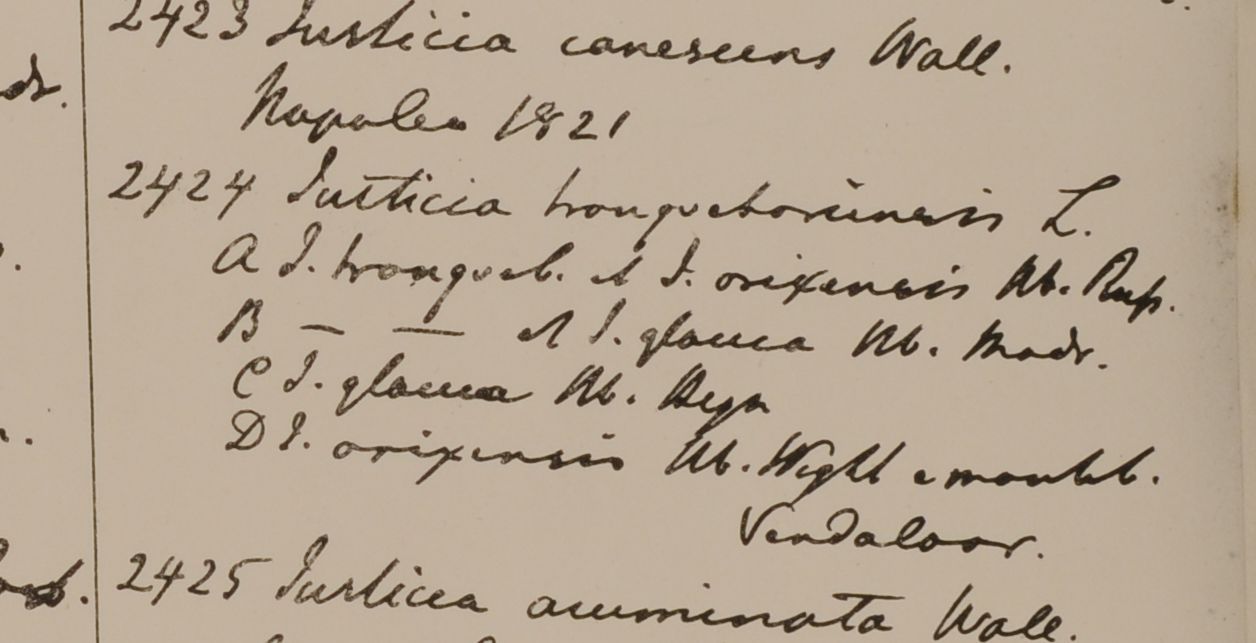 2423 Justicia canescens Wall.
Napalea 1821
dr.
2424 Justicia tranquebariensis L.
A J. tranqueb. et J. orixensis Hb. Russ.
B — — et J. glauca Hb. Madr.
C J. glauca Hb. Heyn
D J. orixensis Hb. Wight e montib.
Vendaloor.
2425 Justicia acuminata Wall.